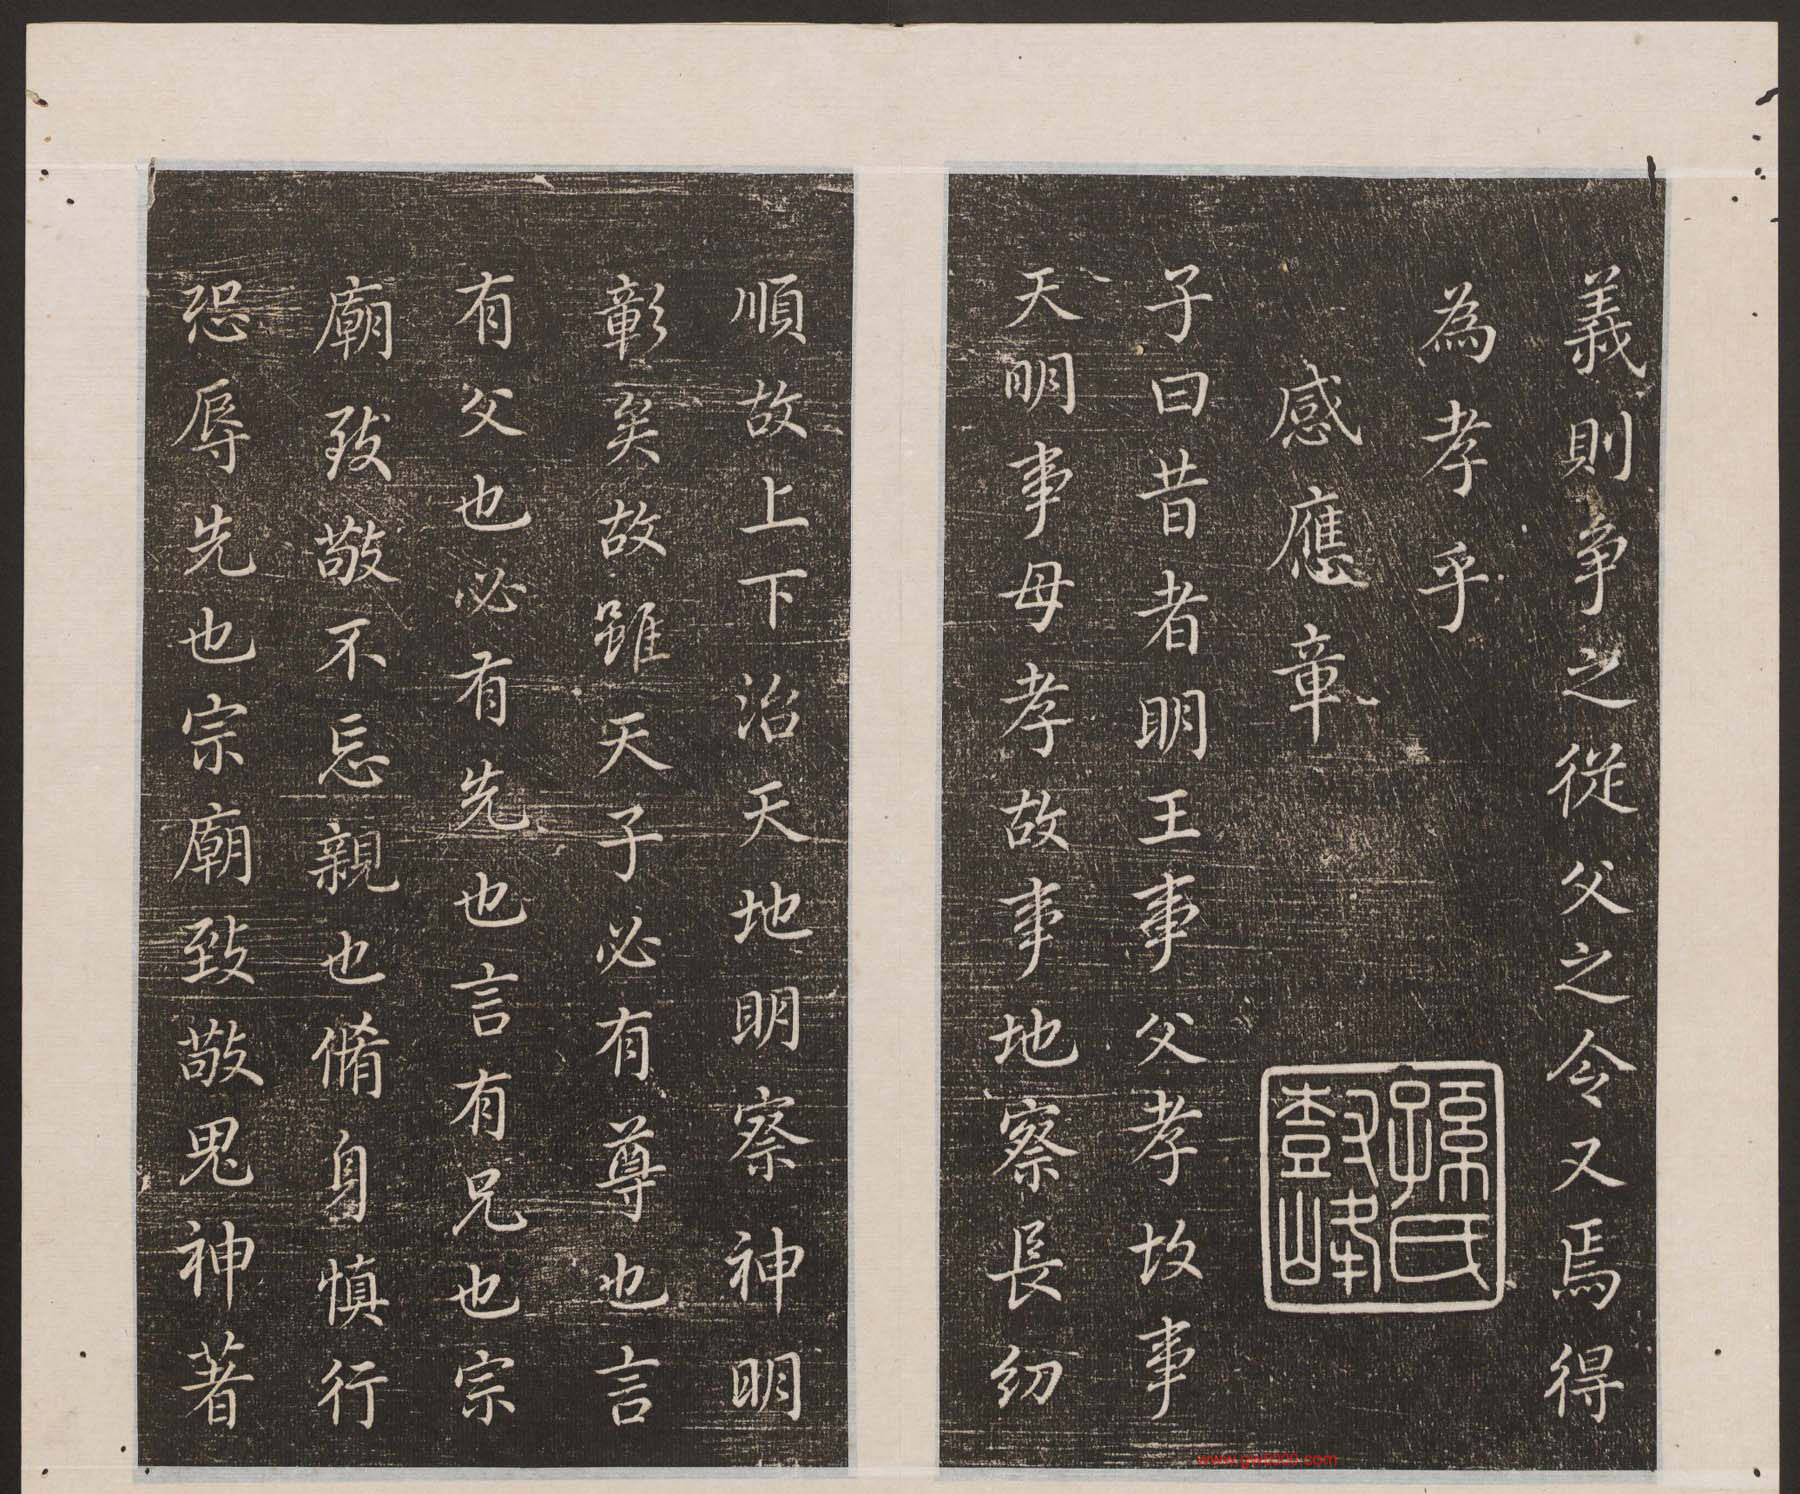 義則争之從父之令又焉得
為孝乎
感應章
子曰昔者明王事父孝故事
天明事母孝故事地察長幼
順故上下治天地明察神明
彰矣故雖天子必有尊也言
有父也必有先也言有兄也宗
廟致敬不忘親也脩身慎行
恐辱先也宗廟致敬鬼神著
孫氏
鼓峰